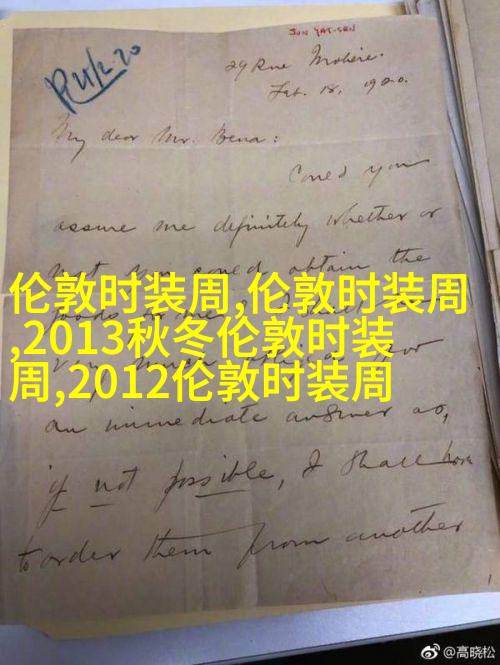 SUN YAT-SEN
R 4/2.20
29 Rue Molière.
Feb. 18, 1920.
My dear Mr. Bena:
Could you
assure me definitely whether or
not you could obtain the
伦敦时装周,伦敦时装周
,2013秋冬伦敦时装
周,2012伦敦时装周
an immediate answer as,
if not possible, I shall have
to order them from another
@高晓松